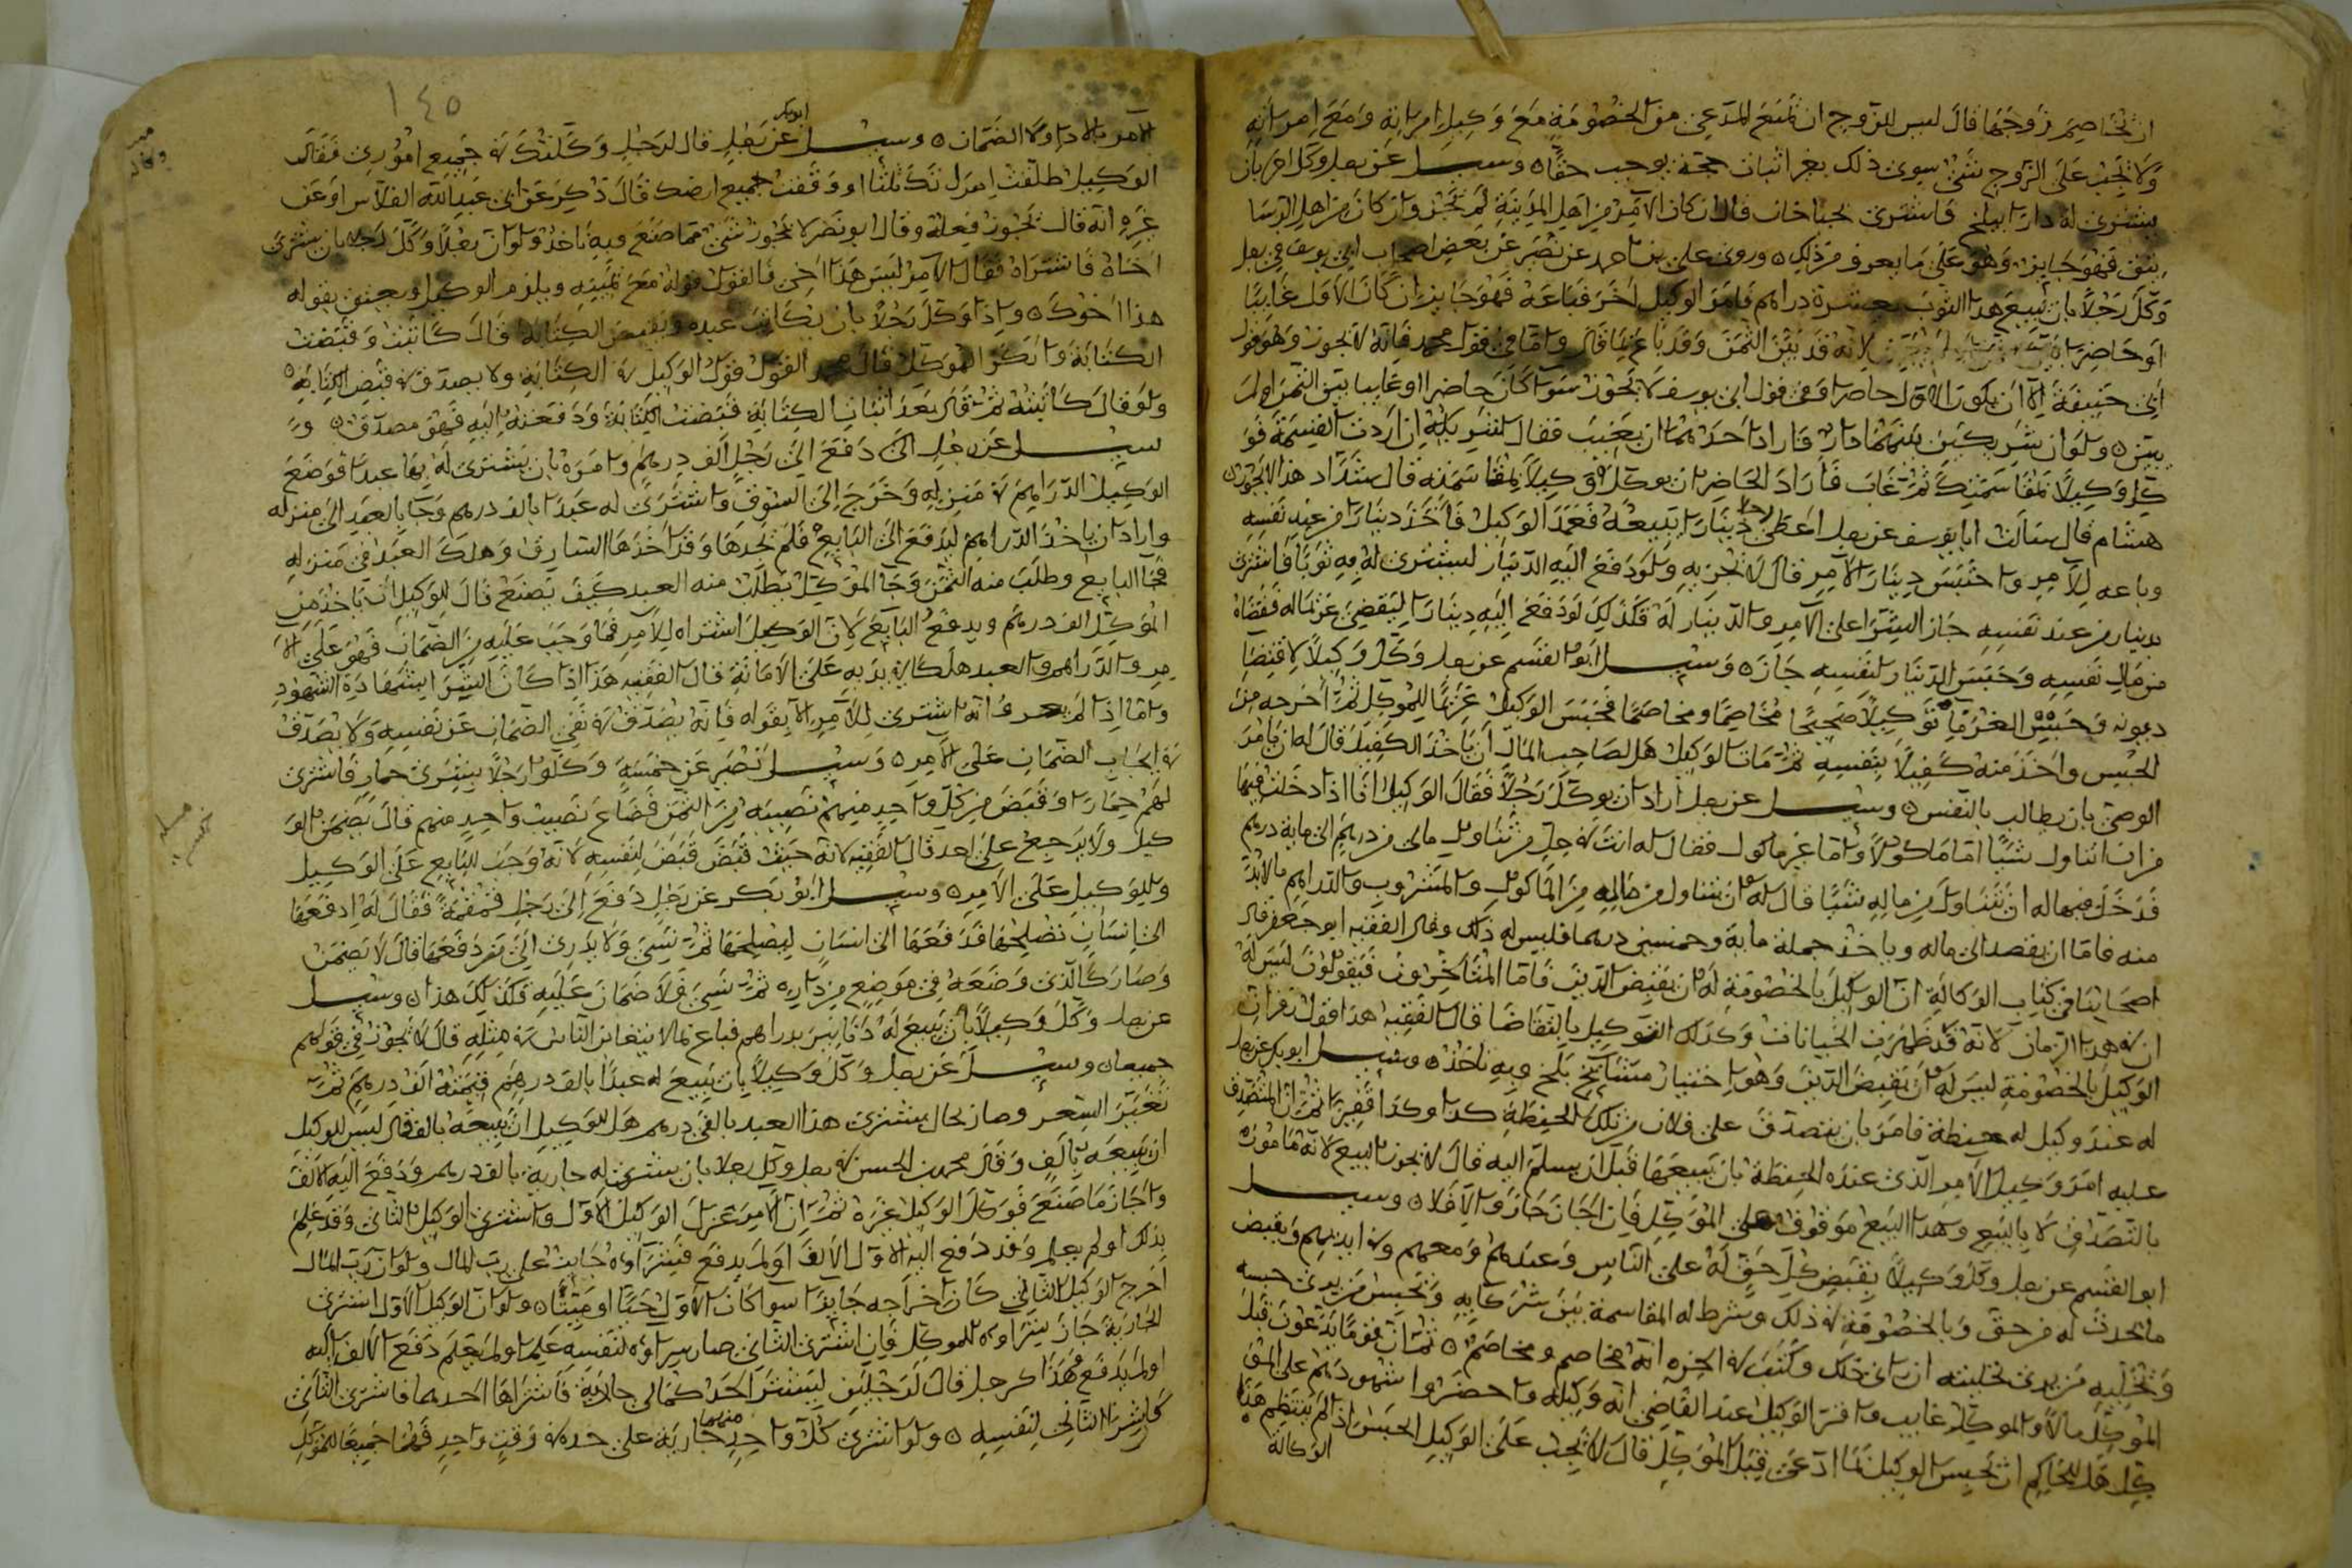 ان تخاصم زوجها قال ليس للزوج ان يمنع المدعي من الخصومة مع وكيل امراته ومع امراته
ولا يجب على الزوج شئ سوى ذلك بغير اثبات حجة توجب حقا وسيل عن رجل وكل اخر بان
يشتري له دارا ببلخ فاشترى خارج قال ان كان الامر من اهل المدينة لم يجز وان كان من اهل الرستا
فهو جايز وهو على ما يعرف من ذلك وروى علي بن احمد عن نصير عن بعض اصحاب ابي يوسف في رجل
وكل رجلا بان يبيع هذا الثوب بعشرة دراهم فامر الوكيل اخر فباعه فهو جايز ان كان الاول غايبا
او حاضرا لانه قد بين الثمن وقد باع واما في قول محمد فانه لا يجوز وهو قول
ابي حنيفة الا ان يكون الاول حاضرا وفي قول ابي يوسف لا يجوز سوا كان حاضرا او غايبا بين الثمن او لم
يبين ولو ان شريكين بينهما دار فاراد احدهما ان يغيب فقال لشريكه ان اردت القسمة فو
كل وكيلا بمقاسمتك ثم غاب فاراد الحاضر ان يوكل وكيلا بمقاسمته قال شداد هذا لا يجوز
هشام قال سالت ابا يوسف عن رجل اعطى رجلا دينارا يبيعه فعمد الوكيل فاخذ دينارا من عند نفسه
وباعه للامر واحتبس دينار الامر قال لا يجزيه ولو دفع اليه الدينار ليشتري له به ثوبا فاشترى
بدينار من عند نفسه جاز الشرا على الامر والدينار له فكذلك لو دفع اليه دينارا ليقضي غريما له فقضاه
من مال نفسه وحبس الدينار لنفسه جاز وسيل ابو القسم عن رجل وكل وكيلا لاقتضا
ديونه وحبس الغرما توكيلا صحيحا مخاصما ومخاصما فحبس الوكيل غريما للموكل ثم اخرجه من
الحبس واخذ منه كفيلا بنفسه ثم مات الوكيل هل لصاحب المال ان ياخذ الكفيل قال له ان يامر
الوصي بان يطالب بالنفس وسيل عن رجل اراد ان يوكل رجلا فقال الوكيل انا اذا دخلت فيها
من ان اتناول شيا اما ماكولا واما غير ماكول فقال له انت في حل من تناول مالي من درهم الى ماية درهم
فدخل فيها له ان يتناول من ماله شيا قال له ان يتناول من ماله من الماكول والمشروب والدراهم ما لا بد
منه فاما ان يقصد الى ماله وياخذ جملة ماية وخمسين درهما فليس له ذلك وقال الفقيه ابو جعفر قال
اصحابنا في كتاب الوكالة ان الوكيل بالخصومة له ان يقبض الدين فاما المتاخرون فيقولون ليس له
ان في هذا الزمان لانه قد ظهرت الخيانات وكذلك التوكيل بالتقاضا قال الفقيه هذا قول زفر ان
الوكيل بالخصومة ليس له ان يقبض الدين وهو اختيار مشايخ بلخ وبه ناخذ وسيل ابو بكر عن رجل
له عند وكيل له حنطة فامر بان يتصدق على فلان من تلك الحنطة كذا وكذا قفيزا ثم ان المتصدق
عليه امر وكيل الامر الذي عنده الحنطة بان يبيعها قبل ان يسلم اليه قال لا يجوز البيع لانه مامور
بالتصدق لا بالبيع وهذا البيع موقوف على الموكل فان اجاز جاز والا فلا وسيل
ابو القسم عن رجل وكل وكيلا بقبض كل حق له على الناس وعندهم ومعهم وفي ايديهم وبقبض
ما يحدث له من حق وبالخصومة في ذلك وشرط له المقاسمة بين شركايه وتحبس من يرى حبسه
وتخليه من يرى تخليته ان راى ذلك وكتب في اخره انه مخاصم ومخاصم ثم ان قوما يدعون قبل
الموكل مالا والموكل غايب واقر الوكيل عند القاضي انه وكيله واحضروا شهودهم على المو
كل هل للحاكم ان يحبس الوكيل بما ادعى قبل الموكل قال لا يجب على الوكيل الحبس اذا لم ينتظم هذا
الوكالة
١٤٥
الامر بالادا ولا الضمان وسيل ابو بكر عن رجل قال لرجل وكلتك في جميع اموري فقال
الوكيل طلقت امراتك ثلثا او وقفت جميع ارضك قال ذكر عن ابي عبد الله القلاس او عن
غيره انه قال يجوز فعله وقال ابو نصر لا يجوز شئ مما صنع وبه ناخذ ولو ان رجلا وكل رجلا بان يشتري
اخاه فاشتراه فقال الامر ليس هذا اخي فالقول قوله مع يمينه ويلزم الوكيل ويعتق بقوله
هذا اخوك واذا وكل رجلا بان يكاتب عبده ويقبض الكتابة قال كاتبت وقبضت
الكتابة وانكر الموكل قال محمد القول قول الوكيل في الكتابة ولا يصدق في قبض الكتابة
ولو قال كاتبته ثم قال بعد اثبات الكتابة قبضت الكتابة ودفعته اليه فهو مصدق و
سيل عن رجل دفع الى رجل الف درهم وامره بان يشتري له بها عبدا فوضع
الوكيل الدراهم في منزله وخرج الى السوق واشترى له عبدا بالف درهم وجا بالعبد الى منزله
واراد ان ياخذ الدراهم ليدفع الى البايع فلم يجدها وقد اخذها السارق وهلك العبد في منزله
فجا البايع وطلب منه الثمن وجا الموكل يطلب منه العبد كيف يصنع قال للوكيل ان ياخذ من
الموكل الف درهم ويدفع البايع لان الوكيل اشتراه للامر فما وجب عليه من الضمان فهو على الا
مر والدراهم والعبد هلكا في يديه على الامانة قال الفقيه هذا اذا كان الشرا بشهادة الشهود
واما اذا لم يعرف انه اشترى للامر الا بقوله فانه يصدق في نفي الضمان عن نفسه ولا يصدق
في ايجاب الضمان على الامر وسيل نصير عن خمسة وكلوا رجلا بشرى حمار فاشترى
لهم حمارا وقبض من كل واحد منهم نصيبه من الثمن فضاع نصيب واحد منهم قال يضمن الو
كيل ولا يرجع على احد قال الفقيه لانه حيث قبض قبض لنفسه لانه وجب للبايع على الوكيل
وللوكيل على الامر وسيل ابو بكر عن رجل دفع الى رجل قمقمة فقال له ادفعها
الى انسان يصلحها فدفعها الى انسان ليصلحها ثم نسي ولا يدري الى من دفعها قال لا يضمن
وصار كالذي وضعه في موضع من داره ثم نسي فلا ضمان عليه فكذلك هذا وسيل
عن رجل وكل وكيلا بان يبيع له دنانير بدراهم فباع بما لا يتغابن الناس في مثله قال لا يجوز في قولهم
جميعا وسيل عن رجل وكل وكيلا بان يبيع له عبدا بالف درهم قيمته الف درهم ثم
تغير السعر وصار بحال يشتري هذا العبد بالفي درهم هل للوكيل ان يبيعه بالف قال ليس للوكيل
ان يبيعه بالف وقال محمد بن الحسن في رجل وكل رجلا بان يشتري له جارية بالف درهم ودفع اليه الالف
واجاز ما صنع فوكل الوكيل غيره ثم ان الامر عزل الوكيل الاول واشترى الوكيل الثاني وقد علم
بذلك او لم يعلم وقد دفع اليه الاول الالف او لم يدفع فشراوه جايز على رب المال ولو ان رب المال
اخرج الوكيل الثاني كان اخراجه جايزا سوا كان الاول حيا او ميتا ولو ان الوكيل الاول اشترى
الجارية جاز شراوه للموكل فان اشترى الثاني صار شراوه لنفسه علم او لم يعلم دفع الالف اليه
او لم يدفع هذا كرجل قال لرجلين ليشتر احدكما لي جارية فاشتراها احدهما فاشترى الثاني
كان شرا الثاني لنفسه ولو اشترى كل واحد منهما جارية على حدة في وقت واحد فهما جميعا للموكل